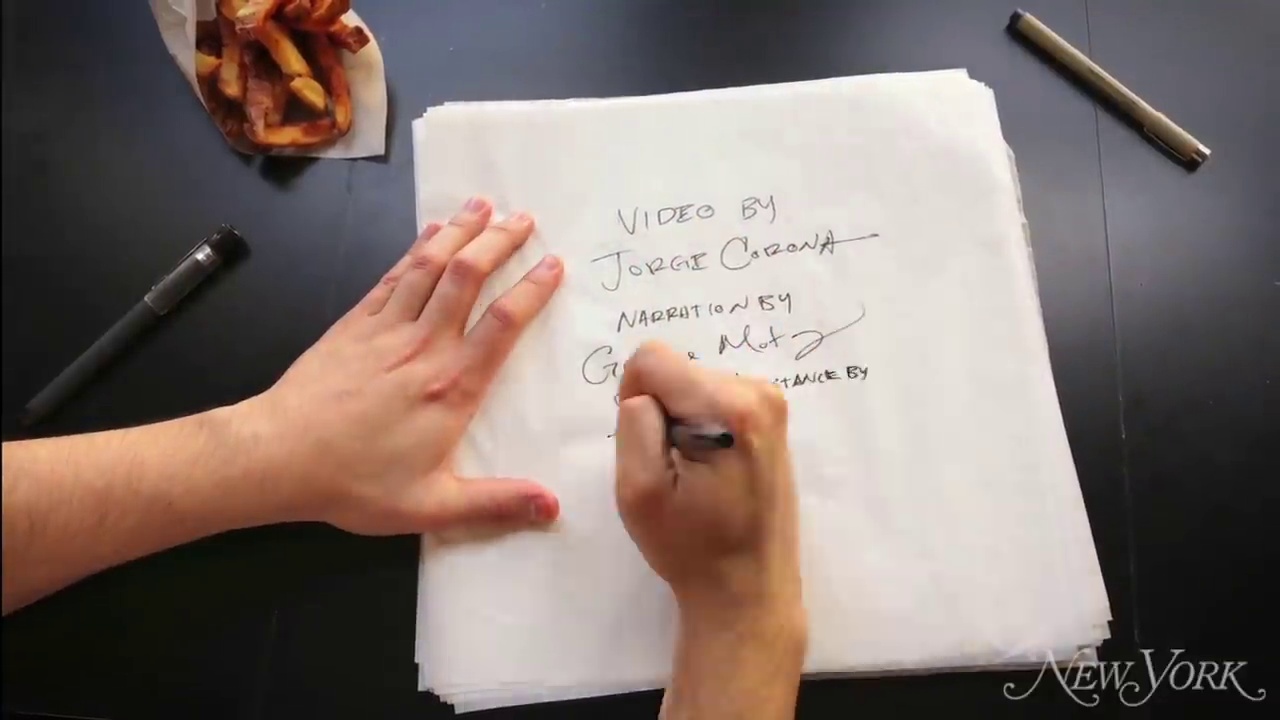 VIDEO BY
JORGE CORONA
NARRATION BY
Motz
BY
NEW YORK